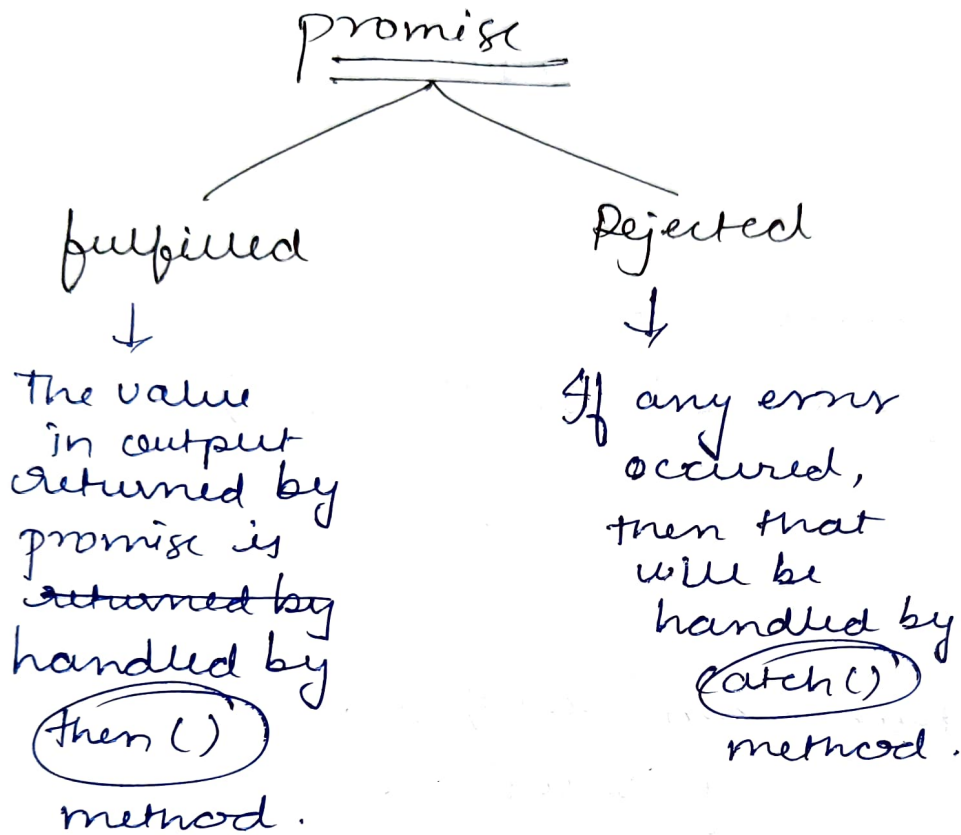 promise
fulfilled
The value
in output
returned by
promise is
returned by
handled by
then ()
method.
Rejected
If any error
occured,
then that
will be
handled by
catch()
method.